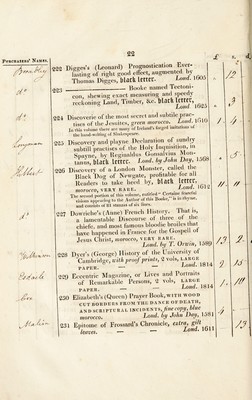 22
PURCHASERS' NAMES.
£ s.
222 Digges's (Leonard) Prognostication Ever-
lasting of right good effect, augmented by
Thomas Digges, black letter. Lond. 1605
12
Do
223 ———— Booke named Tectoni-
con, shewing exact measuring and speedy
reckoning Land, Timber, &c. black letter,
Lond 1625
3
Do
224 Discoverie of the most secret and subtile prac-
tises of the Jesuites, green morocco. Lond. 1610
In this volume there are many of Ireland's forged imitations of
the hand-writing of Shakespeare.
1 4
Longman
225 Discovery and playne Declaration of sundry
subtill practises of the Holy Inquisition, in
Spayne, by Reginaldus Gonsalvius Mon-
tanus, black letter. Lond. by John Day, 1569
Hibbert
226 Discovery of a London Monster, called the
Black Dog of Newgate, profitable for all
Readers to take heed by, black letter,
morocco, VERY RARE. Lond. 1612
The second portion of this, entitled "Certaine fearful
visions appearing to the Author of this Booke," is in rhyme,
and consists of 84 stanzas of six lines.
11 11
Do
227 Dowriche's (Anne) French History. That is,
a lamentable Discourse of three of the
chiefe, and most famous bloodie broiles that
have happened in France for the Gospell of
Jesus Christ, morocco, VERY RARE.
Lond. by T. Orwin, 1589
13
228 Dyer's (George) History of the University of
Cambridge, with proof prints, 2 vols, LARGE
PAPER. — — — Lond. 1814
2 15
229 Eccentric Magazine, or Lives and Portraits
of Remarkable Persons, 2 vols, LARGE
PAPER. — — — Lond. 1814
1 10
230 Elizabeth's (Queen) Prayer Book, WITH WOOD
CUT BORDERS FROM THE DANCE OF DEATH,
AND SCRIPTURAL INCIDENTS, fine copy, blue
morocco. Lond. by John Day, 1581
4
231 Epitome of Frossard's Chronicle, extra, gilt
leaves. — — — Lond. 1611
13